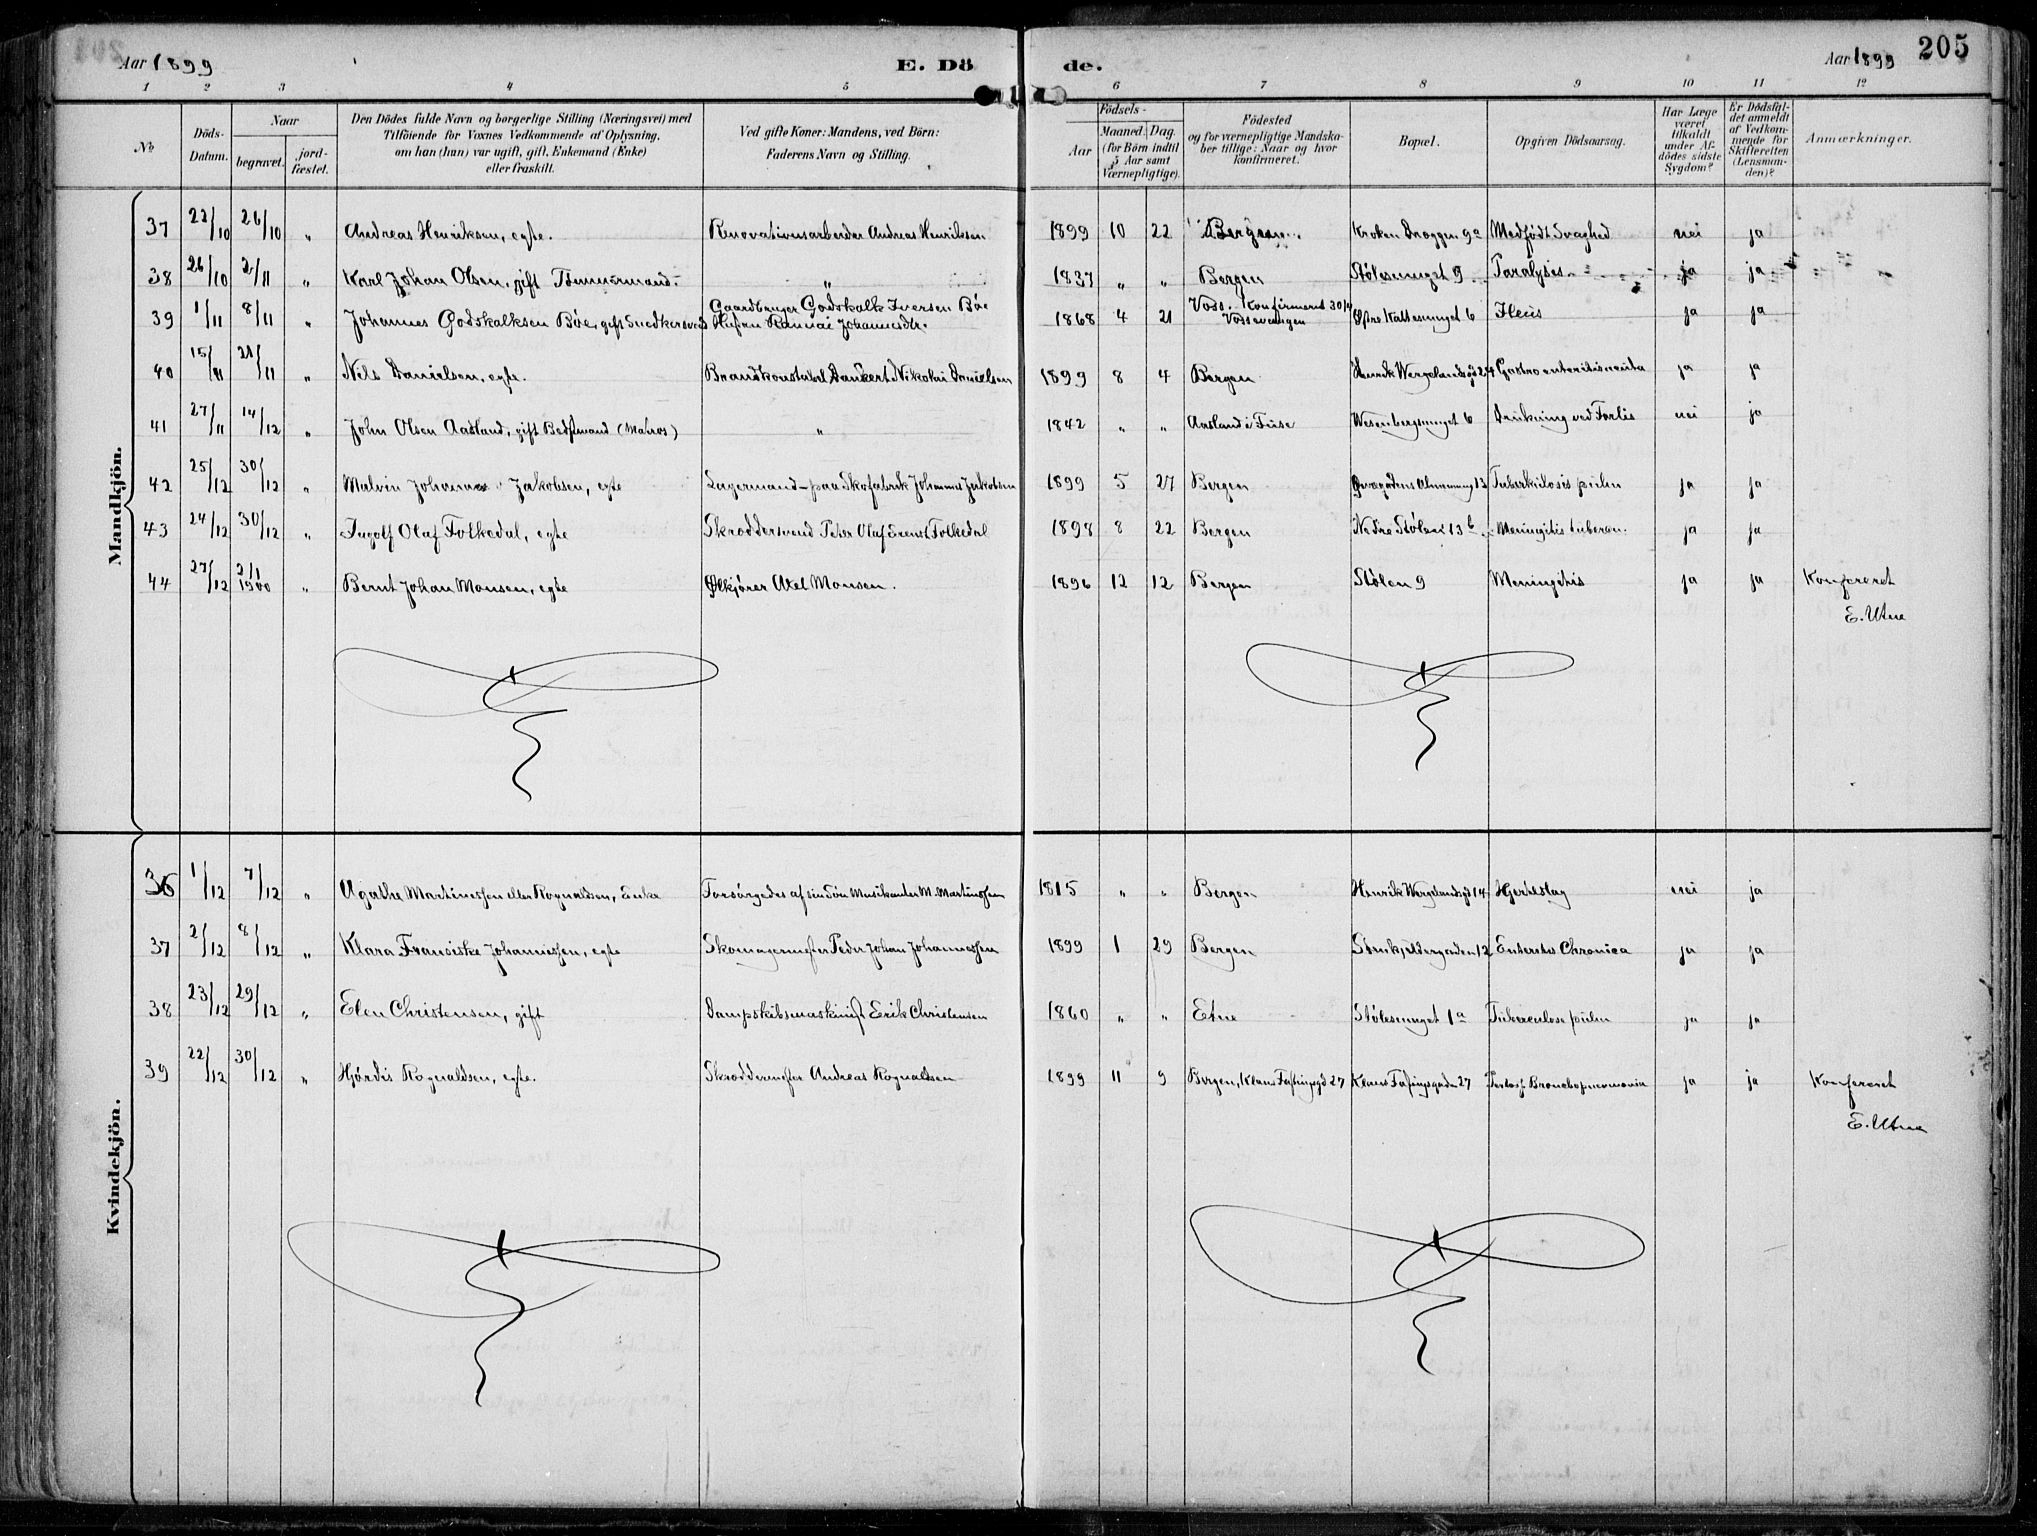 Aar 1899 E. Dö de. Aar 1899 205
1 2 3 4 5 6 7 8 9 10 11 12
№ Döds-Datum. Naar begravet. jord-fæstet. Den Dödes fulde Navn og borgerlige Stilling (Næringsvei) med Tilföiende for Voxnes Vedkommende af Oplysning, om han (hun) var ugift, gift, Enkemand (Enke) eller fraskilt. Ved gifte Koner: Mandens, ved Börn: Faderens Navn og Stilling. Födsels- Aar Maaned. Dag. (for Börn indtil 5 Aar samt Værnepligtige). Födested og for værnepligtige Mandskaber tillige: Naar og hvor konfirmeret. Bopæl. Opgiven Dödsaarsag. Har Læge været tilkaldt under Afdödes sidste Sygdom? Er Dödsfaldet anmeldt af Vedkommende for Skifteretten (Lensmanden)? Anmærkninger.
Mandkjön.
37 22/10 26/10 " Andreas Henriksen, egte. Renovationsarbeider Andreas Henriksen 1899 10 22 Bergen. Kroken Dræggen 9a Medfødt Svaghed nei ja
38 26/10 2/11 " Karl Johan Olsen, gift Tømmermand. " 1837 " " Bergen Stølesmuget 9 Paralysis ja ja
39 1/11 8/11 " Johannes Godskalksen Bøe, gift Snedkersvend Gaardbruger Godskalk Iversen Bøe Hustru Rannai Johannesdtr. 1868 4 21 Voss. Konfirmeret 30/4 Vossevangen Østre Kattesmuget 6 Ileus ja ja
40 15/11 21/11 " Nils Danielsen, egte. Brandkonstabel Dankert Nikolai Danielsen 1899 8 4 Bergen Henrik Wergelandsgd 24 Gastro enteritis acuta ja ja
41 27/11 14/12 " John Olsen Aasland, gift Bedstmand (Matros) " 1842 " " Aasland i Fuse Wesenbergsmuget 6 Drukning ved Forlis nei ja
42 25/12 30/12 " Malvin Johannes Jakobsen, egte Lagermand paa Skofabrik Johannes Jakobsen 1899 5 27 Bergen Øvregadens Almenning 13 Tuberkulosis pulm ja ja
43 24/12 30/12 " Ingolf Olaf Folkedal, egte Skræddersvend Peter Olaf Ernst Folkedal 1898 8 22 Bergen Nedre Stølen 13b Meningitis tubercu. ja ja
44 27/12 2/1 1900 " Bernt Johan Monsen, egte Ølkjører Axel Monsen. 1896 12 12 Bergen Stølen 9 Meningitis ja ja Konfereret
E. Utne
Kvindekjön.
36 1/12 7/12 " Agathe Martinessen eller Rognaldsen, Enke Forsørgedes af sin Søn Musikanter M. Martinessen 1815 " " Bergen Henrik Wergelandsgd 14 Hjerteslag nei ja
37 2/12 8/12 " Klara Fransiske Johannessen, egte Skomagermester Peder Johan Johannessen 1899 1 29 Bergen Stenkjeldergaden 12 Enteritis Chronica ja ja
38 23/12 29/12 " Elen Christensen, gift Dampskibsmaskinist Erik Christensen 1860 " " Etne Stølesmuget 1a Tuberculose pulm ja ja
39 22/12 30/12 " Hjørdis Rognaldsen, egte. Skræddermester Andreas Rognaldsen 1899 11 9 Bergen, Klaus Fastingsgd 27 Klaus Fastingsgaden 27 Bronchopneumonia ja ja Konfereret
E. Utne